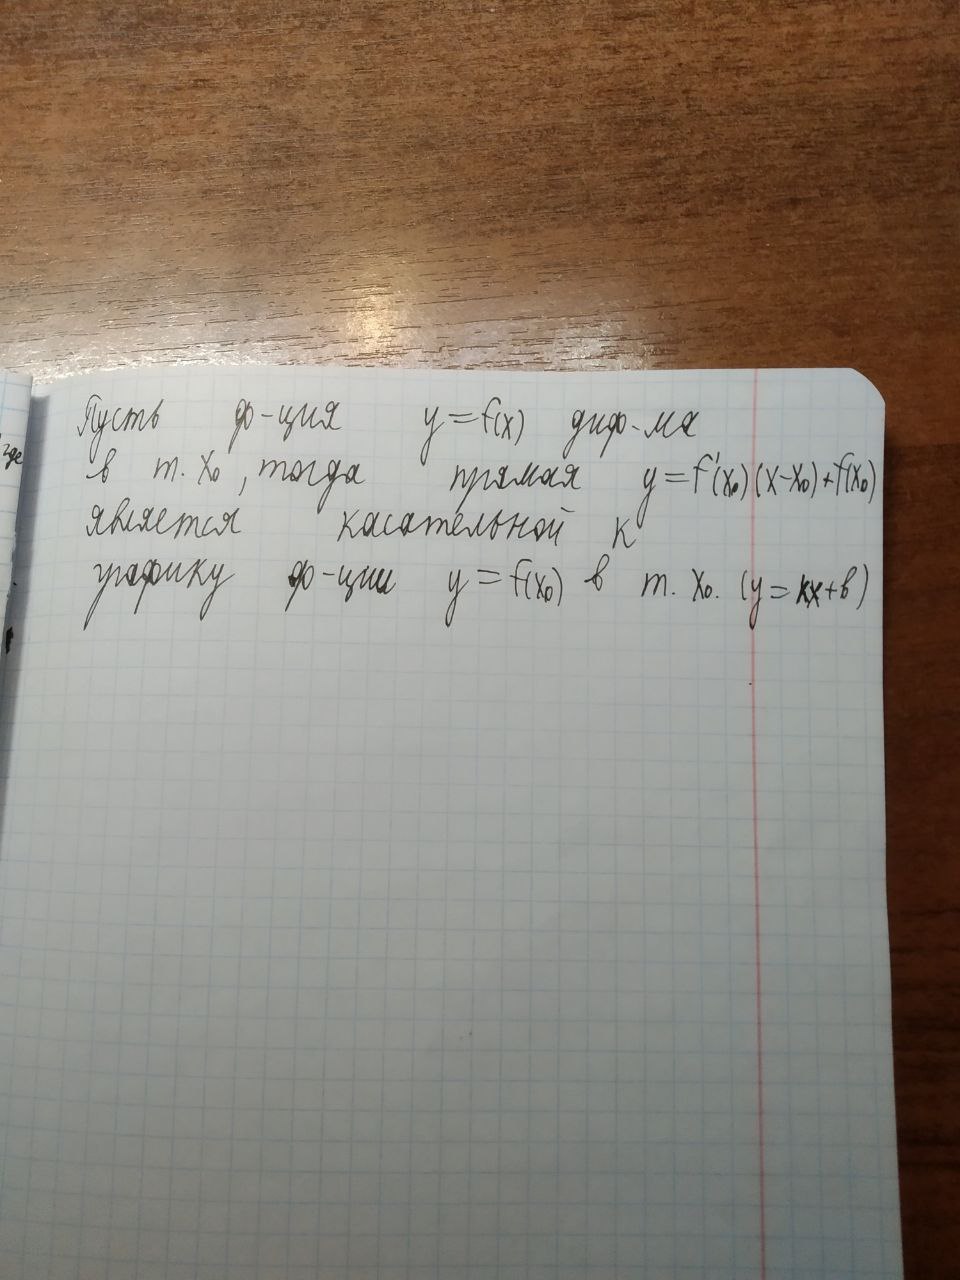 Пусть ф-ция y=f(x) диф-ма
в т. x₀, тогда прямая y=f'(x₀)(x-x₀)+f(x₀)
является касательной к
графику ф-ции y=f(x₀) в т. x₀. (y=kx+b)
где